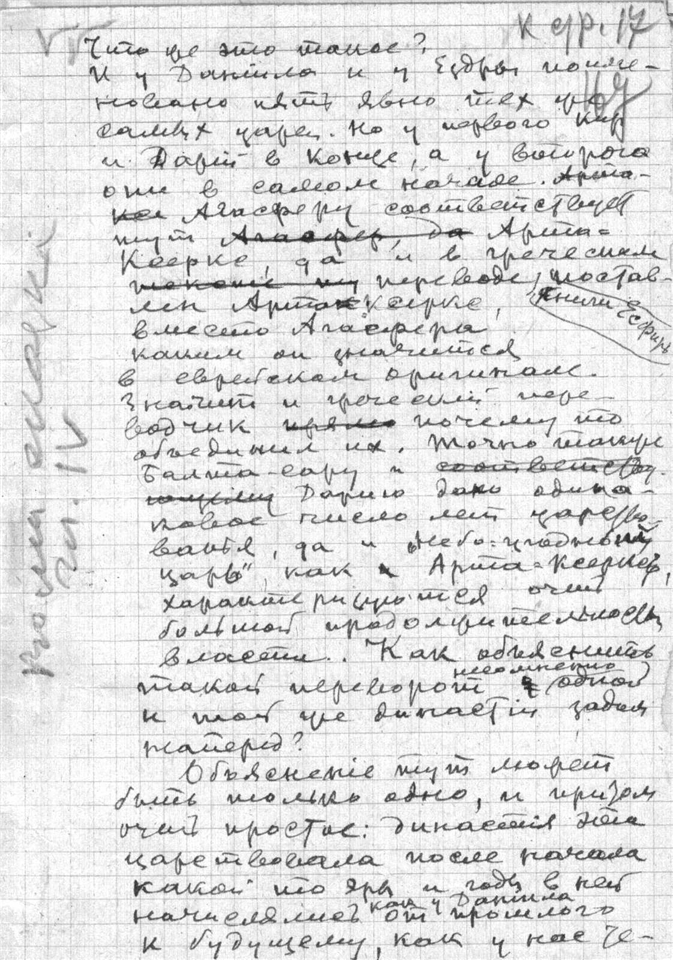 к стр. 17
Что же это такое?
И у Даніила и у Ездры поиме-
новано пять явно тех же
самых царей. Но у первого Кир
и Дарій в конце, а у второго
они в самом начале. Арта-
Агасферу соответствует
тут Агасфер, да Арта-
Ксеркс, да и в греческом
переводе постав-
лен Артаксеркс,
книги Эсфирь
вместо Агасфера
каким он значится
в еврейском оригинале.
Значит и греческій пере-
водчик прямо почему то
объединил их. Точно также
Балта-сару и соответству-
ющему Дарию дано одина-
ковое число лет царство
ванья, да и "Небо-угодный
царь", как и Арта-Ксеркс,
характеризуются очень
большой продолжительностью
власти. Как объяснить
такой переворот несомненно одной
и той же династіи задом
наперед?
Объясненіе тут может
быть только одно, и притом
очень простое: династія эта
царствовала после начала
какой то эры и годы в ней
начислялись как у Даніила от прошлого
к будущему, как у нас те-
гл. IV